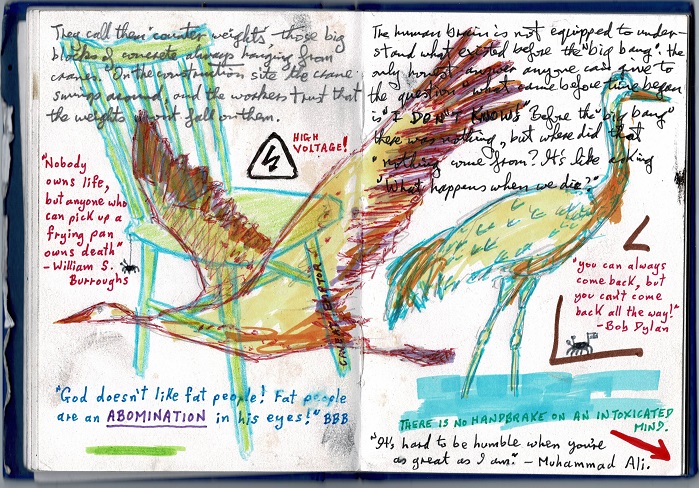 They call them "counter weights", those big
blocks of concrete always hanging from
cranes. On the construction site the crane
swings around, and the workers trust that
the weights won't fall on them.
HIGH
VOLTAGE!
"Nobody
owns life,
but anyone who
can pick up a
frying pan
owns death"
- William S.
Burroughs
"God doesn't like fat people! Fat people
are an ABOMINATION in his eyes!" BBB
The human brain is not equipped to under-
stand what existed before the "big bang". the
only honest answer anyone can give to
the question what came before time began
is "I DON'T KNOWS" Before the "big bang"
there was nothing, but where did that
"nothing come from? It's like asking
"What happens when we die?"
"you can always
come back, but
you can't come
back all the way!"
- Bob Dylan
THERE IS NO HANDBRAKE ON AN INTOXICATED
MIND.
"It's hard to be humble when you're
as great as I am." - Muhammad Ali.